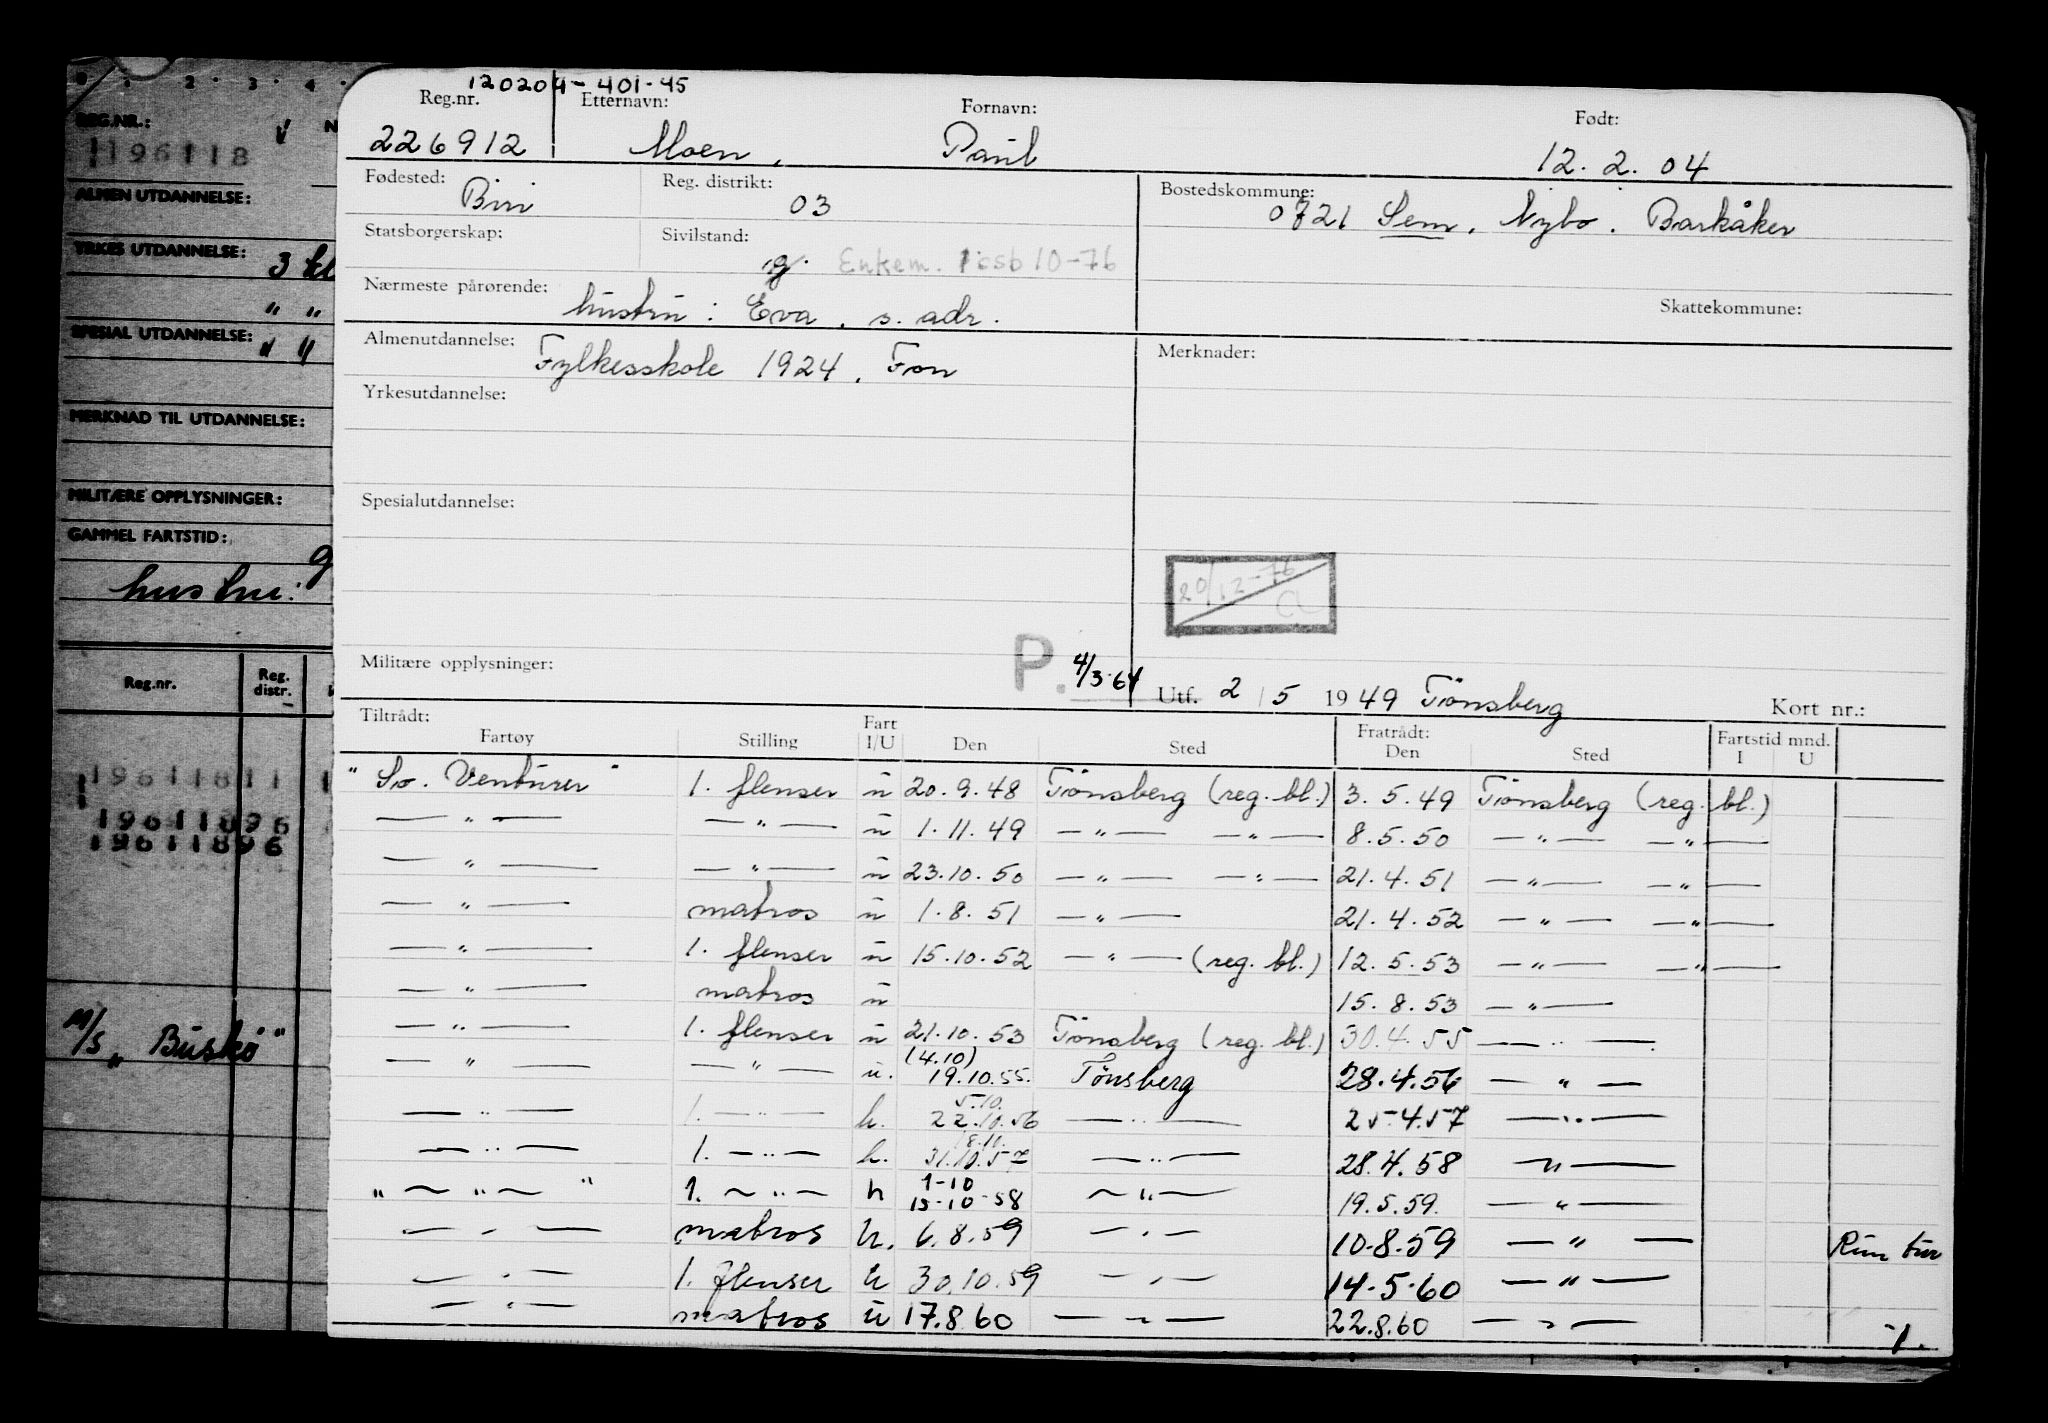 120204-401-45
Reg.nr. Etternavn: Fornavn: Født:
226912 Moen, Paul 12.2.04
Fødested: Biri Reg. distrikt: 03 Bostedskommune: 0721 Sem, Nybo. Barkåker
Statsborgerskap: Sivilstand: g. Enkem. 10-76
Nærmeste pårørende: hustru: Eva, s. adr. Skattekommune:
Almenutdannelse: Fylkesskole 1924, Fon Merknader:
Yrkesutdannelse:
Spesialutdannelse:
20/12-76 CL
Militære opplysninger: P. 4/3-64 Utf. 2/5 1949 Tönsberg Kort nr.:
Tiltrådt: Fartøy Stilling Fart I/U Den Sted Fratrådt: Den Sted Fartstid mnd. I U
"Sv. Venturer" 1. flenser u 20.9.48 Tönsberg (reg. bl.) 3.5.49 Tönsberg (reg. bl.)
— " — — " — u 1.11.49 — " — — " — 8.5.50 — " — — " —
— " — — " — u 23.10.50 — " — — " — 21.4.51 — " — — " —
— " — matros u 1.8.51 — " — 21.4.52 — " — — " —
— " — 1. flenser u 15.10.52 — " — (reg. bl.) 12.5.53 — " — — " —
— " — matros u 15.8.53 — " —
— " — 1. flenser u 21.10.53 Tönsberg (reg. bl.) 30.4.55 — " —
— " — — " — u. (4.10) 19.10.55. Tønsberg 28.4.56 — " —
— " — 1. — " — h. 5.10. 22.10.56 — " — 25.4.57 — " —
— " — 1. — " — h. 8.10. 31.10.57 — " — 28.4.58 — " —
" — " — " 1. — " — h 1-10 15-10-58 — " — 19.5.59. — " —
— " — matros h. 6.8.59 — " — 10.8.59 — " — Run tur
— " — 1. flenser h 30.10.59 — " — 14.5.60 — " —
— " — matros u 17.8.60 — " — 22.8.60 — " —
-1.
REG.NR.:
196118
ALMEN UTDANNELSE:
YRKES UTDANNELSE: 3
" "
SPESIAL UTDANNELSE: " "
MERKNAD TIL UTDANNELSE:
MILITÆRE OPPLYSNINGER:
GAMMEL FARTSTID:
g
hustru:
Reg.nr. Reg. distr.
19611811
19611896
19611896
M/S "Buskø"